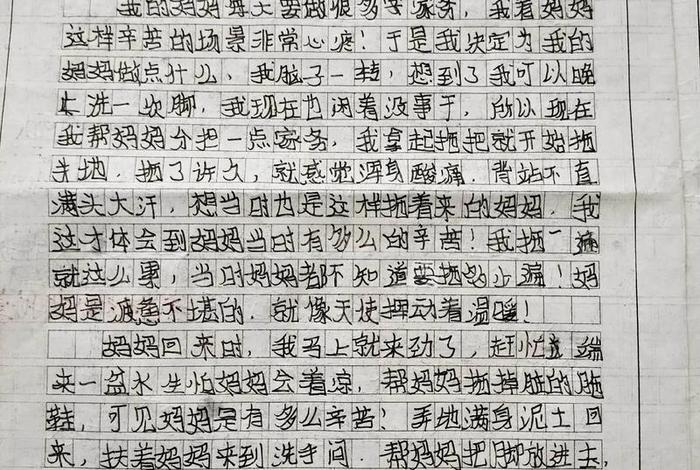 我的妈妈每天要做很多家务，我看妈妈
这样辛苦的场景非常心疼！于是我决定为我的
妈妈做点什么，我脑子一转，想到了我可以晚
上洗一次脚，我现在也闲着没事于，所以现在
我帮妈妈分担一点家务，我拿起拖把就开始拖
地，拖了许久，就感觉浑身酸痛，背站不直
满头大汗，想当时也是这样拖着来的妈妈，我
这才体会到妈妈当时有多么的辛苦！我拖一遍
就这么累，当时妈妈都不知道要拖多少遍！妈
妈是疲惫不堪的，就像天使挥动着温暖！
妈妈回来时，我马上就来劲了，赶忙端
来一盆水生怕妈妈会着凉，帮妈妈拖掉脏的拖
鞋，可见妈妈是有多么辛苦！弄地满身泥土回
来，扶着妈妈来到洗手间，帮妈妈把脚放进去，